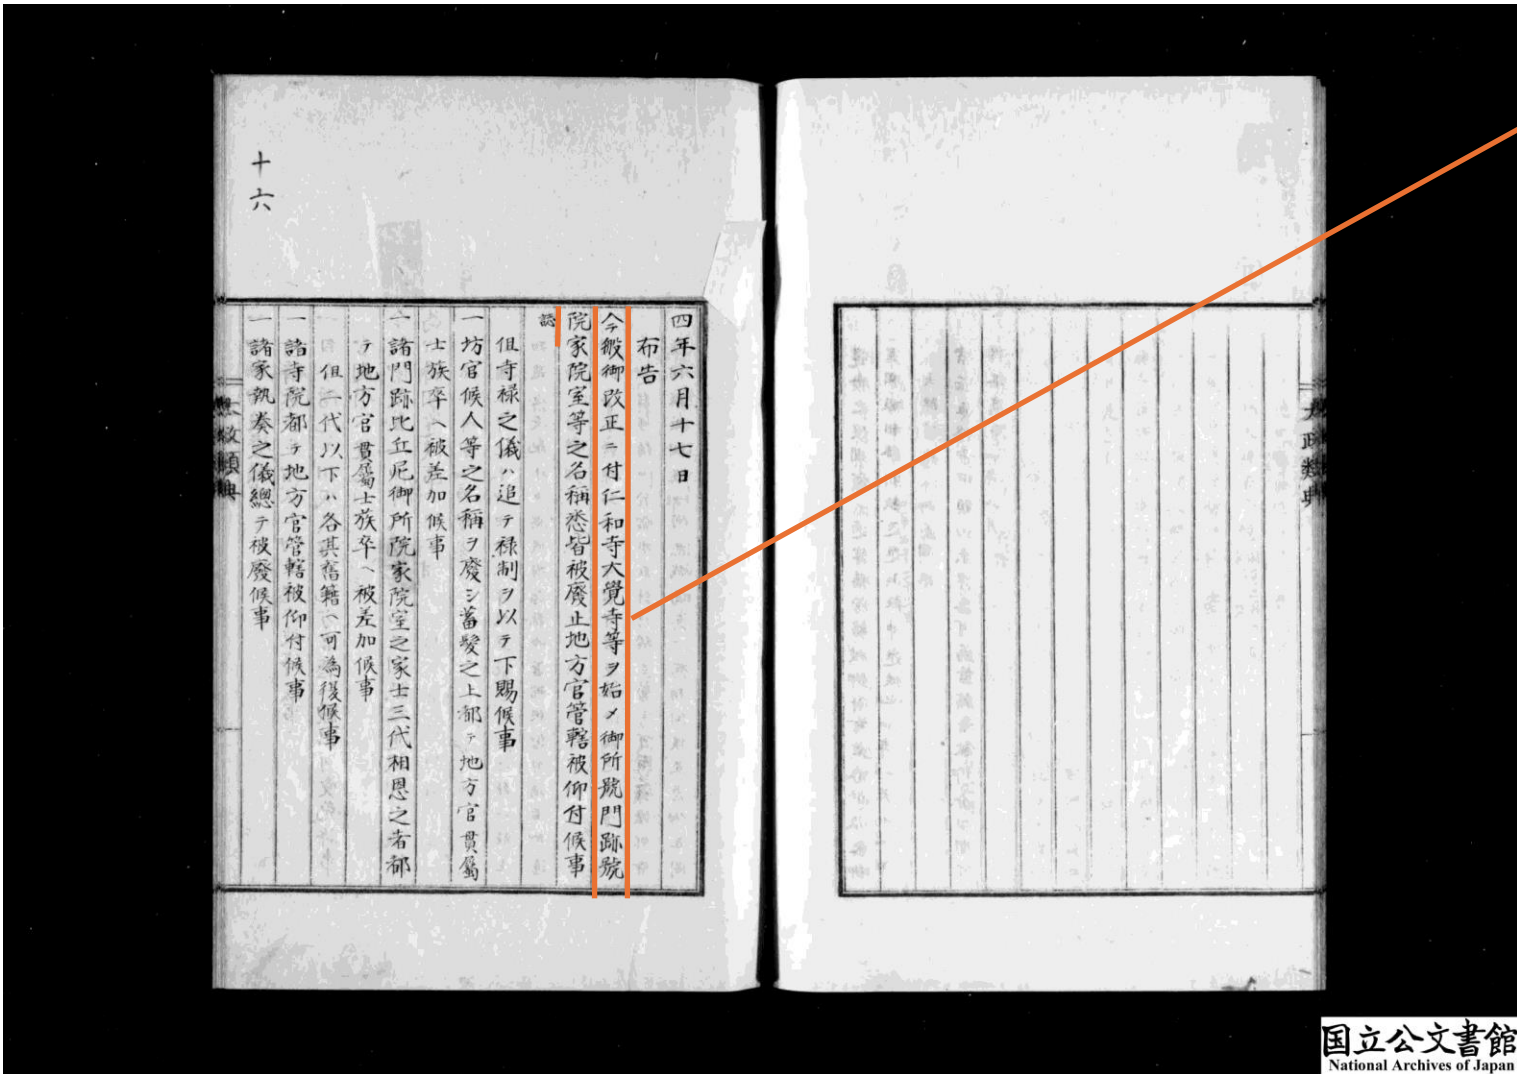 十六
四年六月十七日
布告
今テ般御改正ニ付仁和寺大覺寺等ヲ始メ御所號門跡號
院家院室等之名稱悉皆被廢止地方官管轄被仰付候事
誌
但寺禄之儀ハ追テ禄制ヲ以テ下賜候事
一坊官候人等之名稱ヲ廢シ蓄髮之上都テ地方官貫屬
士族卒ヘ被差加候事
一諸門跡比丘尼御所院家院室之家士三代相恩之者都
テ地方官貫屬士族卒ヘ被差加候事
但二代以下ハ各其舊籍ヘ可為復候事
一諸寺院都テ地方官管轄被仰付候事
一諸家執奏之儀總テ被廢候事
太政類典
国立公文書館
National Archives of Japan